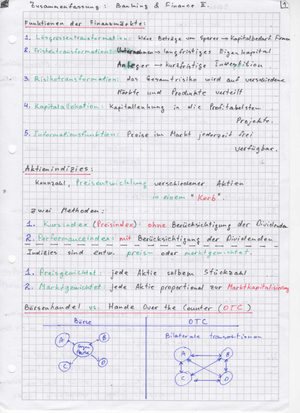 Zusammenfassung: Banking & Finance II.
1
Funktionen der Finanzmärkte:
1. Losgrössentransformation: kleine Beträge von Sparer → Kapitalbedarf Firmen
2. Fristentransformation: Unternehmen → langfristiges Eigenkapital
Anleger → kurzfristige Investition.
3. Risikotransformation: das Gesamtrisiko wird auf verschiedene
Märkte und Produkte verteilt
4. Kapitalallokation: Kapitallenkung in die Profitabelsten
Projekte.
5. Informationsfunktion: Preise im Markt jederzeit frei
verfügbar.
Aktienindizies:
Kennzahl, Preisentwicklung verschiedener Aktien
in einem "Korb".
Zwei Methoden:
1. Kursindex (Preisindex): ohne Berücksichtigung der Dividenden
2. Performanceindex: mit Berücksichtigung der Dividenden
Indizies sind entw. preis- oder marktgewichtet.
1. Preisgewichtet: jede Aktie selben Stückzahl
2. Marktgewichtet: jede Aktie proportional zur Marktkapitalisierung
Börsenhandel vs. Hande Over the Counter (OTC)
Börse
OTC
Bilaterale transaktionen
A
B
C
D
A
B
C
D